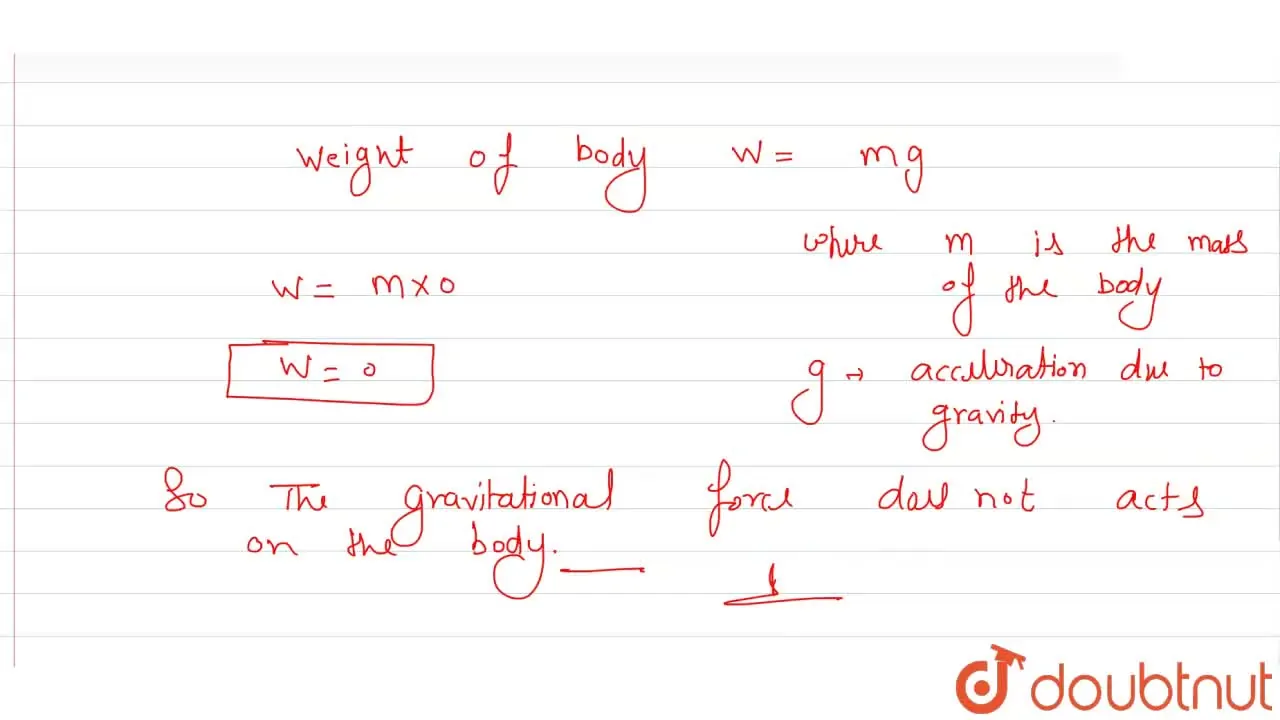 Weight of body W = mg
where m is the mass
of the body
W = m × 0
W = 0
g → acceleration due to
gravity.
So The gravitational force does not acts
on the body.
doubtnut